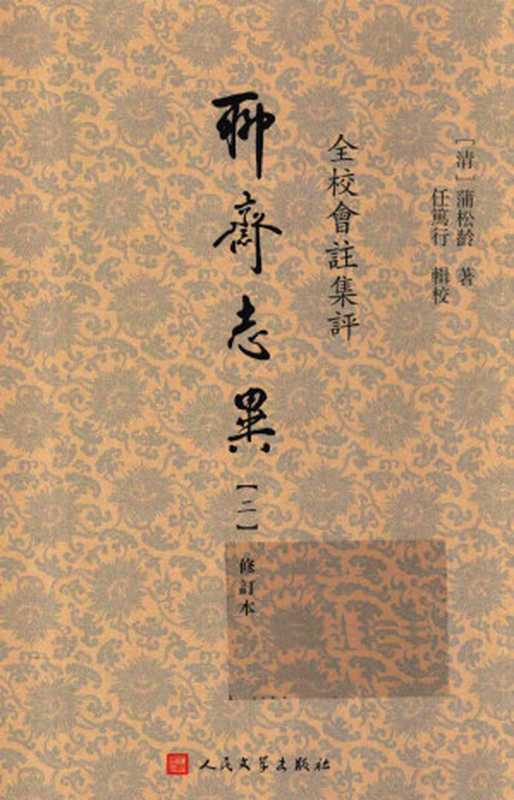 ［清］蒲松龄 著
任篤行 輯校
全校會註集評
聊齋志異
【二】
修訂本
人民文学出版社